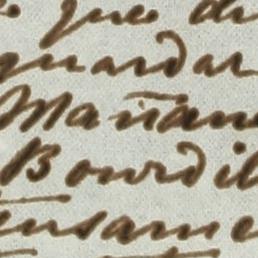 que de
guardar
Mañana
Bourdil
ensame